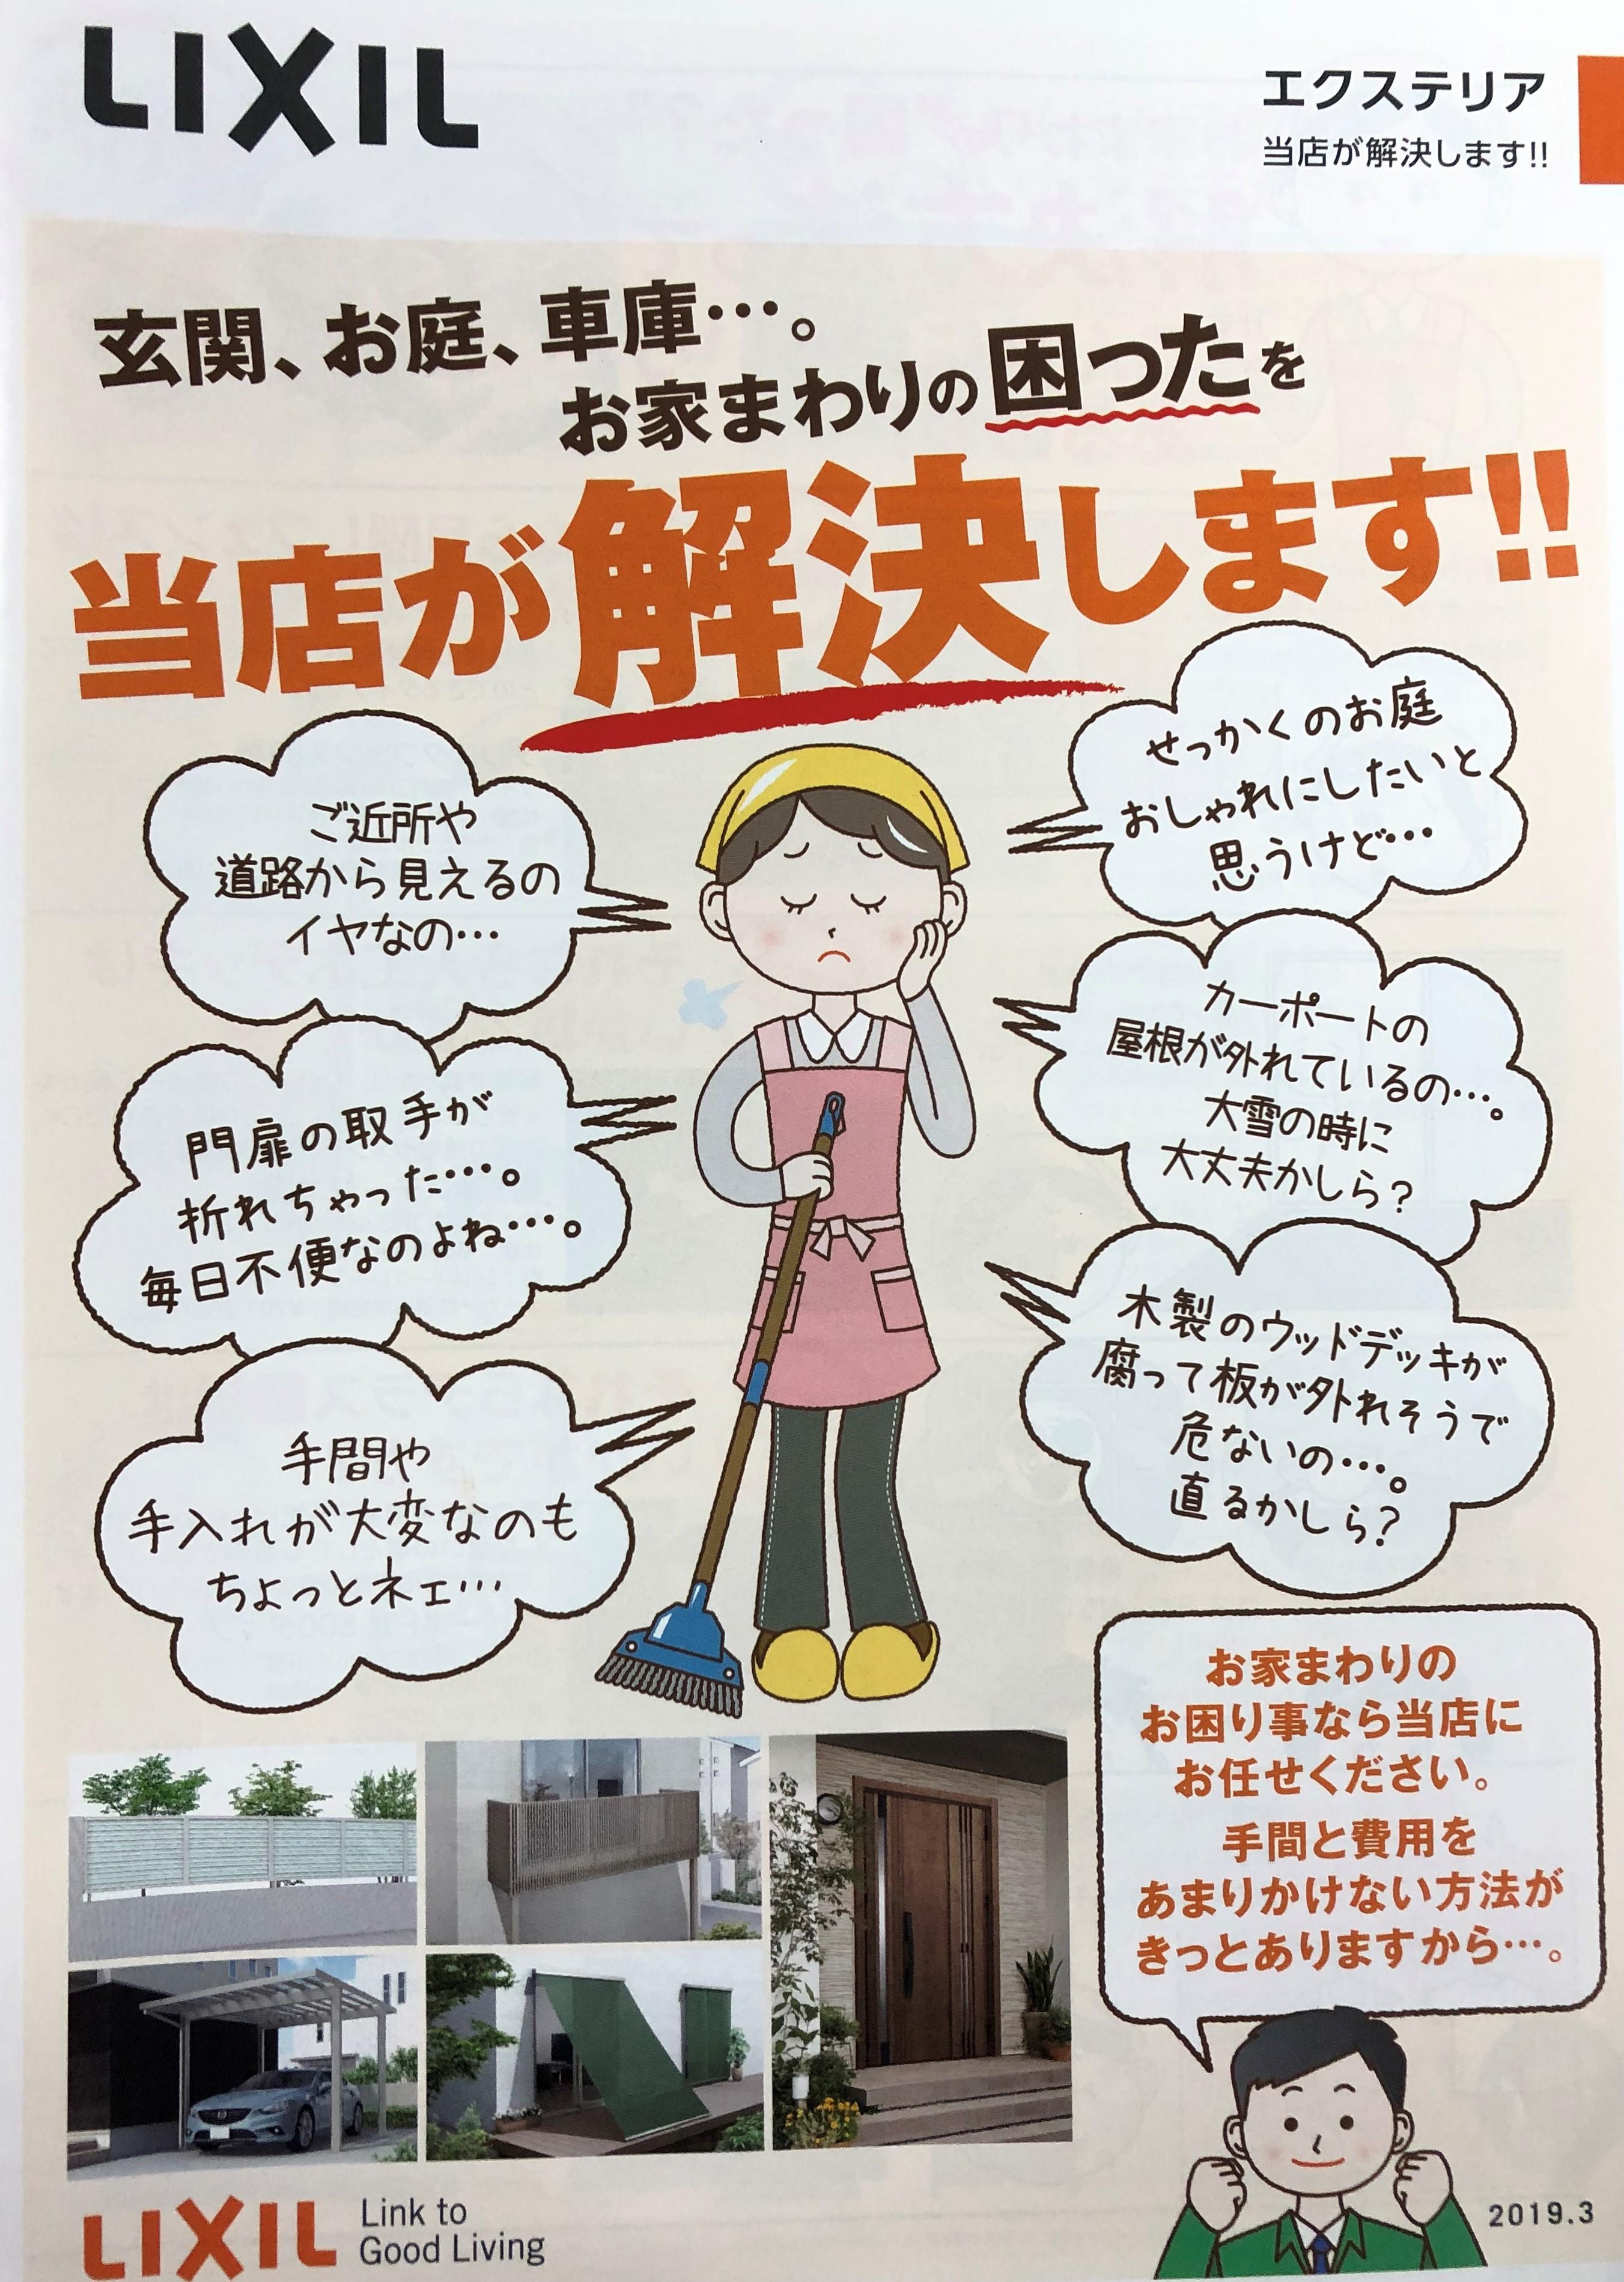 LIXIL
エクステリア
当店が解決します!!
玄関、お庭、車庫…。
お家まわりの困ったを
当店が解決します!!
ご近所や
道路から見えるの
イヤなの…
門扉の取手が
折れちゃった…。
毎日不便なのよね…。
手間や
手入れが大変なのも
ちょっとネェ…
せっかくのお庭
おしゃれにしたいと
思うけど…
カーポートの
屋根が外れているの…。
大雪の時に
大丈夫かしら?
木製のウッドデッキが
腐って板が外れそうで
危ないの…。
直るかしら?
お家まわりの
お困り事なら当店に
お任せください。
手間と費用を
あまりかけない方法が
きっとありますから…。
LIXIL
Link to
Good Living
2019.3